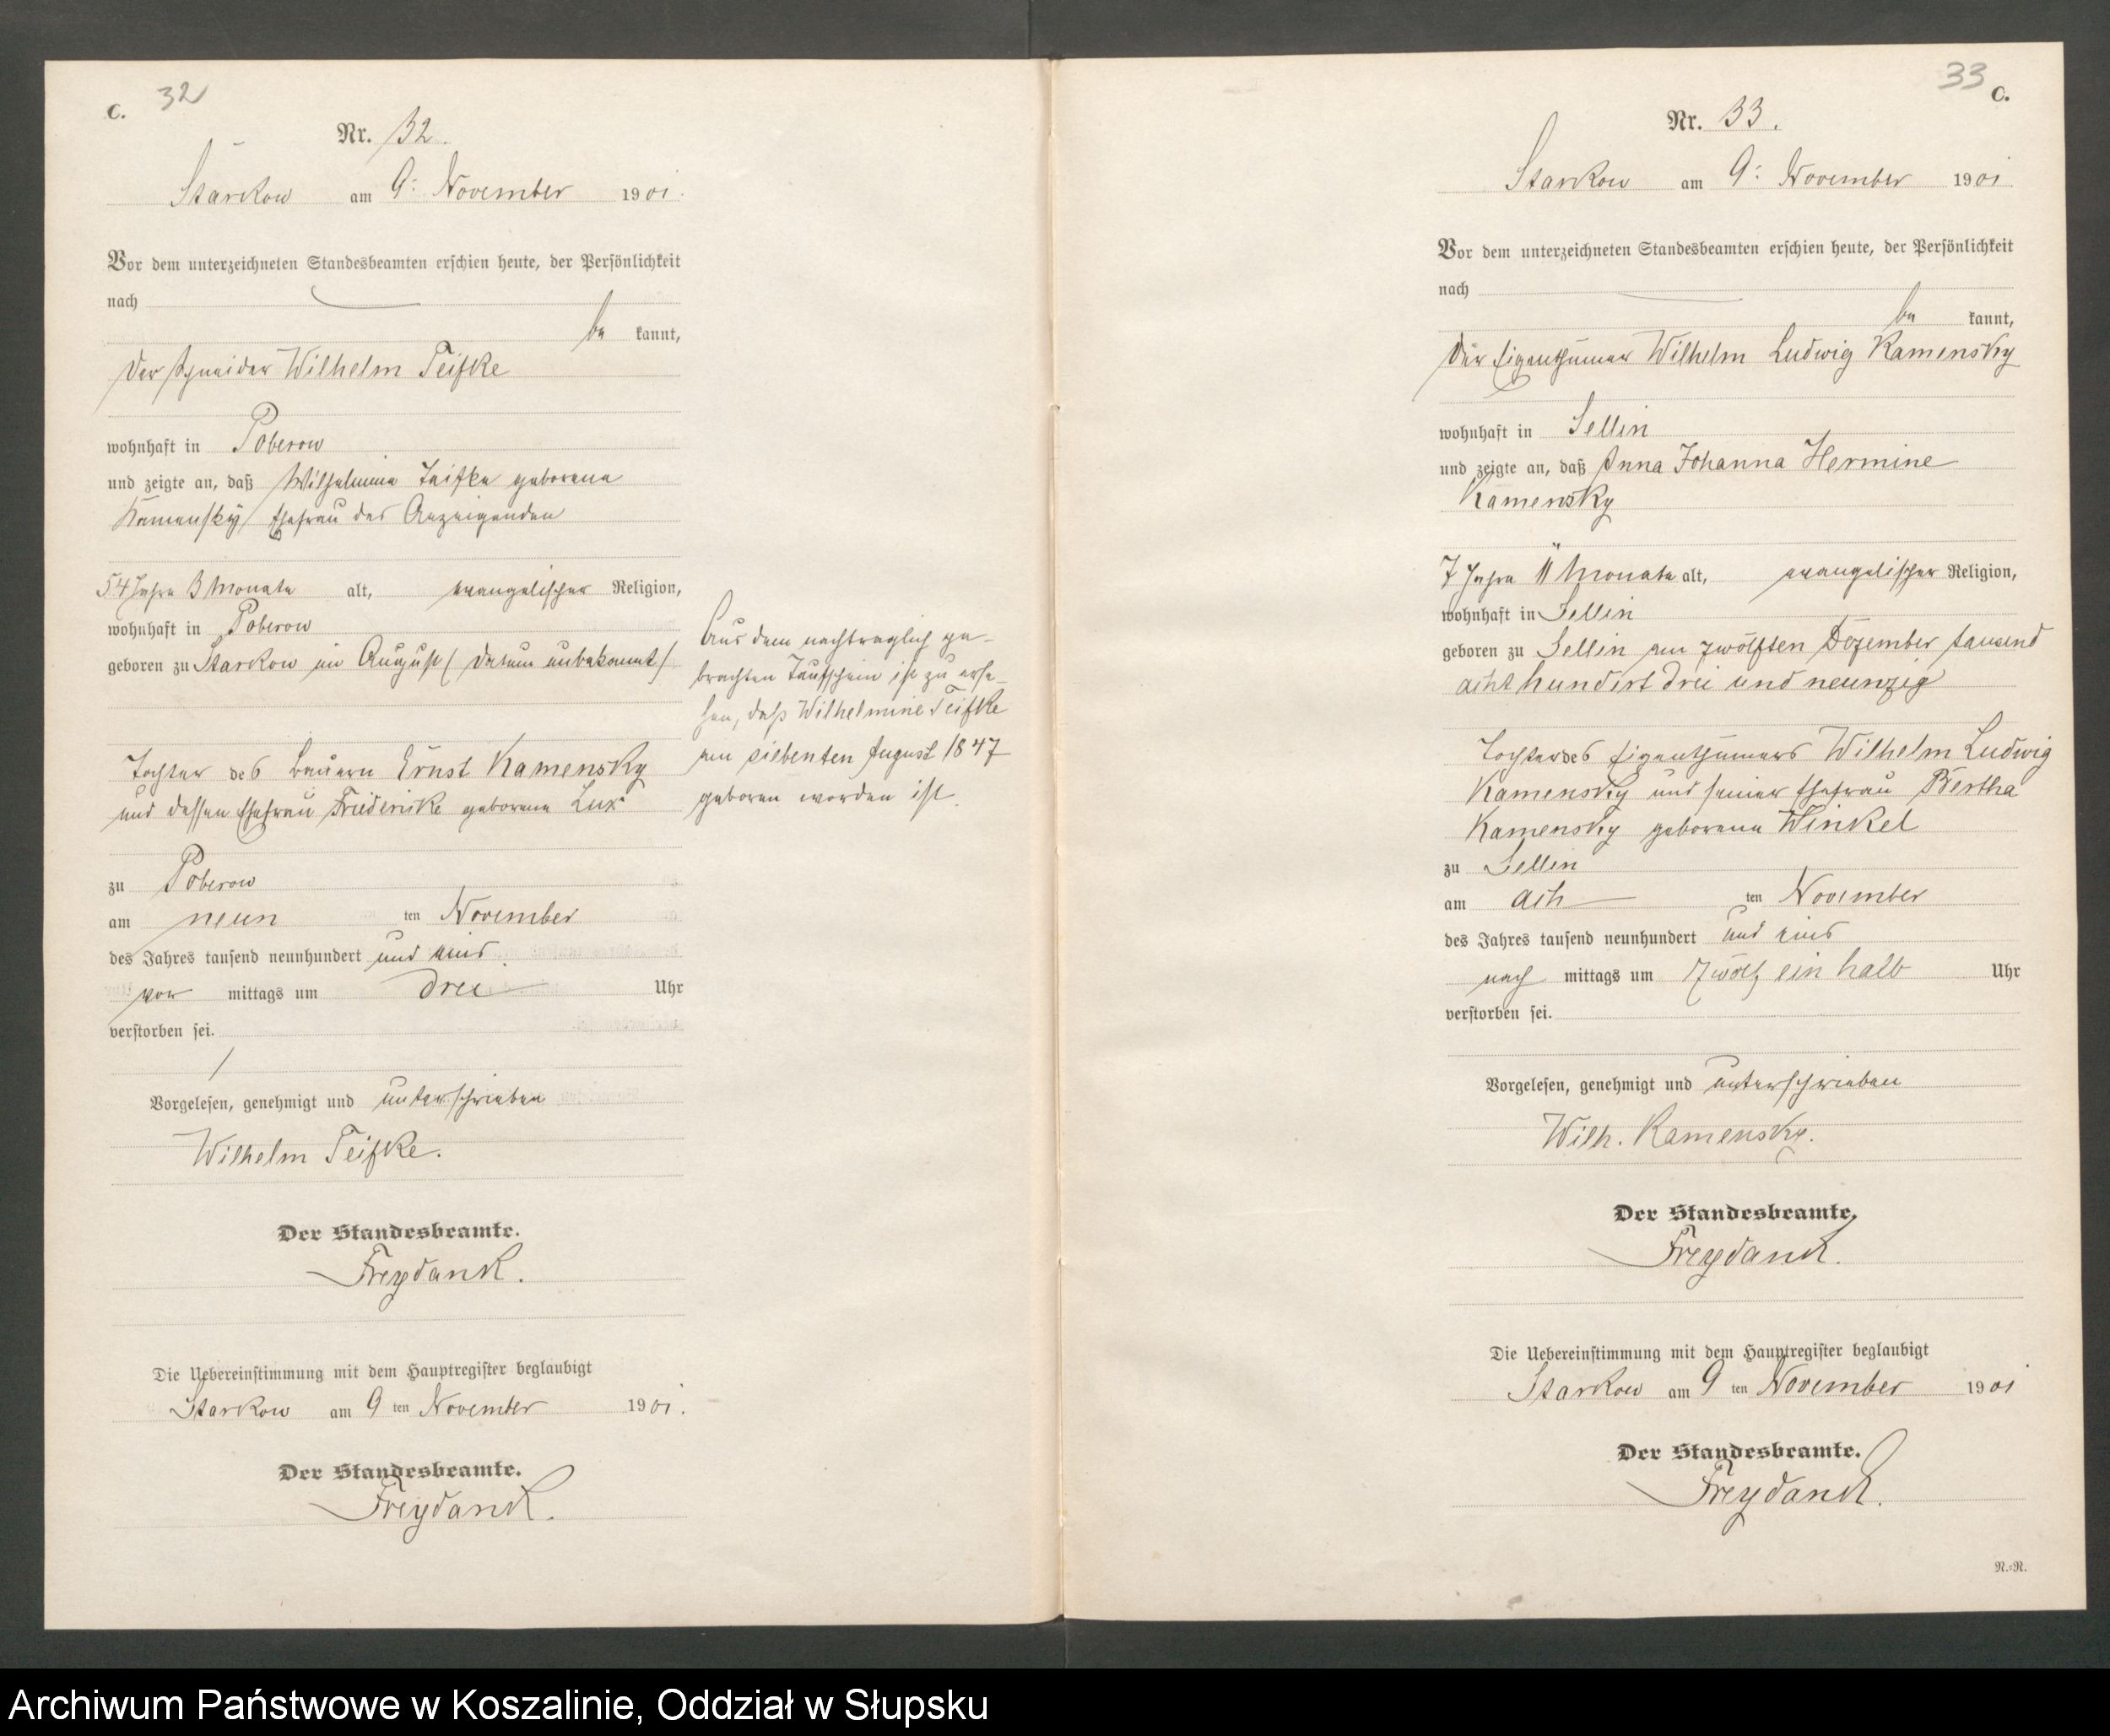 C. 32
Nr. 32.
Starkow am 9: November 1901.
Vor dem unterzeichneten Standesbeamten erschien heute, der Persönlichkeit
nach
be kannt,
der Schneider Wilhelm Teifke
wohnhaft in Poberow
und zeigte an, daß Wilhelmine Teifke geborene
Kamensky Ehefrau des Anzeigenden
54 Jahre 3 Monate alt, evangelischer Religion,
wohnhaft in Poberow
geboren zu Starkow im August (Datum unbekannt)
Tochter des Bauern Ernst Kamensky
und dessen Ehefrau Friedericke geborene Lux
zu Poberow
am neun ten November
des Jahres tausend neunhundert und eins
vor mittags um drei Uhr
verstorben sei.
Vorgelesen, genehmigt und unterschrieben
Wilhelm Teifke.
Der Standesbeamte.
Freydank.
Die Uebereinstimmung mit dem Hauptregister beglaubigt
Starkow am 9 ten November 1901.
Der Standesbeamte.
Freydank.
Aus dem nachträglich ge-
brachten Taufschein ist zu erse-
hen, daß Wilhelmine Teifke
am siebenten August 1847
geboren worden ist.
33 C.
Nr. 33.
Starkow am 9: November 1901
Vor dem unterzeichneten Standesbeamten erschien heute, der Persönlichkeit
nach
be kannt,
der Eigenthümer Wilhelm Ludwig Kamensky
wohnhaft in Sellin
und zeigte an, daß Anna Johanna Hermine
Kamensky
7 Jahre 11 Monate alt, evangelischer Religion,
wohnhaft in Sellin
geboren zu Sellin am zwölften Dezember tausend
acht hundert drei und neunzig
Tochter des Eigenthümers Wilhelm Ludwig
Kamensky und seiner Ehefrau Bertha
Kamensky geborene Winkel
zu Sellin
am ach ten November
des Jahres tausend neunhundert und eins
nach mittags um zwölf ein halb Uhr
verstorben sei.
Vorgelesen, genehmigt und unterschrieben
Wilh. Kamensky.
Der Standesbeamte.
Freydank.
Die Uebereinstimmung mit dem Hauptregister beglaubigt
Starkow am 9 ten November 1901
Der Standesbeamte.
Freydank.
N.=R.
Archiwum Państwowe w Koszalinie, Oddział w Słupsku